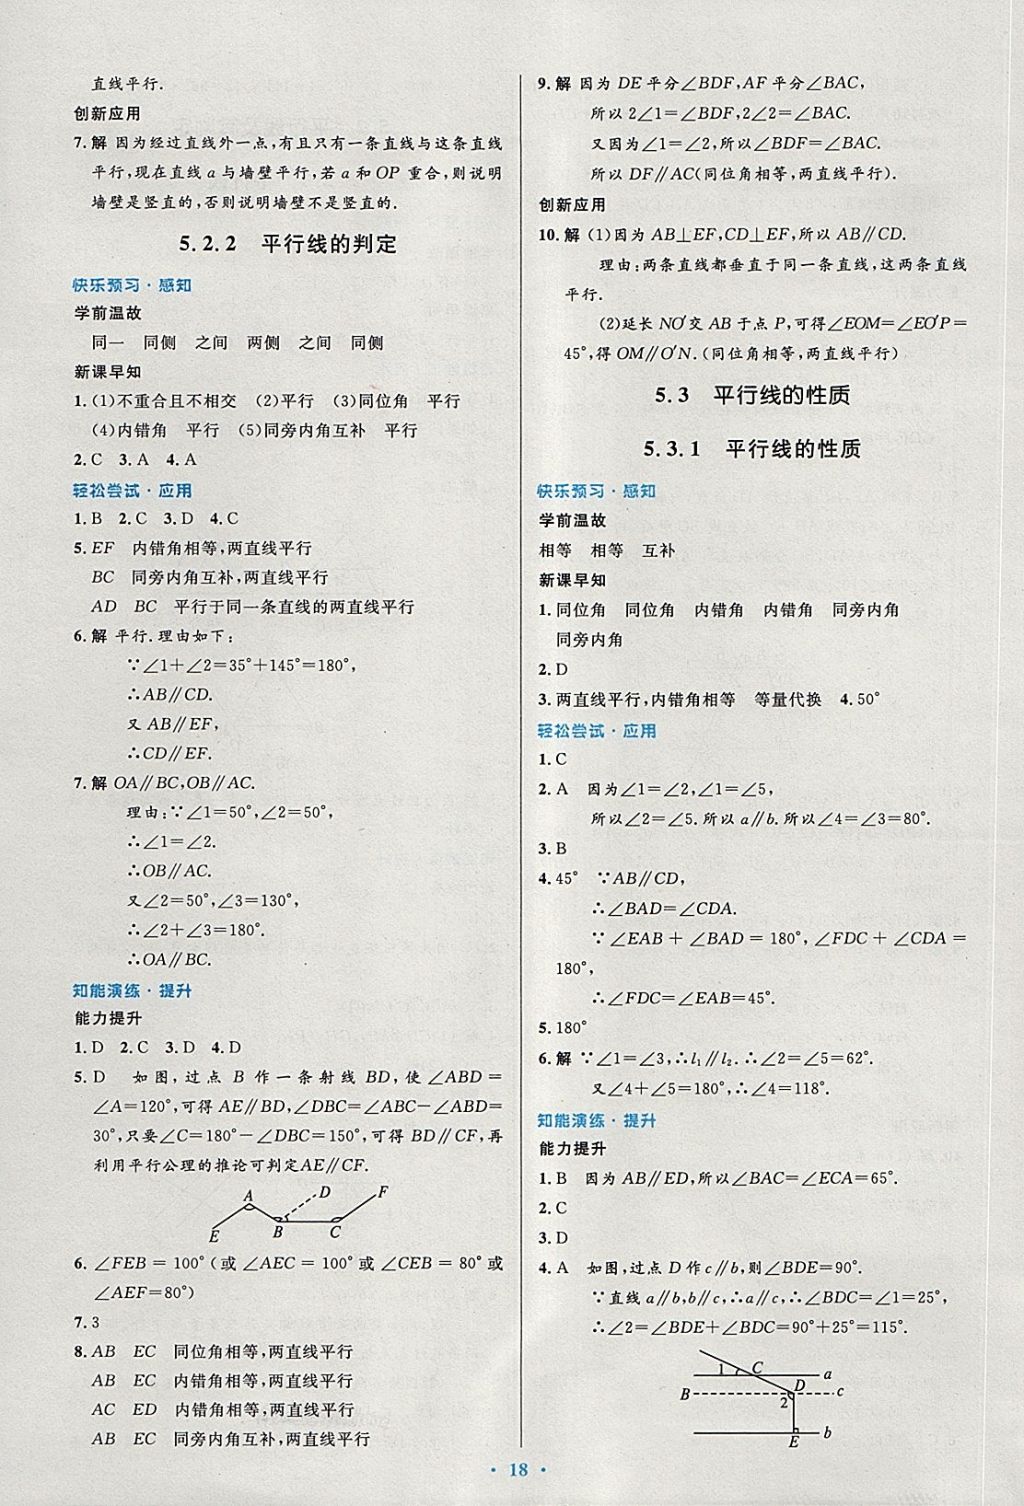 直线平行.
创新应用
7.解 因为经过直线外一点,有且只有一条直线与这条直线
平行,现在直线a与墙壁平行,若a和OP重合,则说明
墙壁是竖直的,否则说明墙壁不是竖直的.
5.2.2 平行线的判定
快乐预习·感知
学前温故
同一 同侧 之间 两侧 之间 同侧
新课早知
1.(1)不重合且不相交 (2)平行 (3)同位角 平行
(4)内错角 平行 (5)同旁内角互补 平行
2.C 3.A 4.A
轻松尝试·应用
1.B 2.C 3.D 4.C
5.EF 内错角相等,两直线平行
BC 同旁内角互补,两直线平行
AD BC 平行于同一条直线的两直线平行
6.解 平行.理由如下:
∵∠1+∠2=35°+145°=180°,
∴AB∥CD.
又AB∥EF,
∴CD∥EF.
7.解 OA∥BC,OB∥AC.
理由:∵∠1=50°,∠2=50°,
∴∠1=∠2.
∴OB∥AC.
又∠2=50°,∠3=130°,
∴∠2+∠3=180°.
∴OA∥BC.
知能演练·提升
能力提升
1.D 2.C 3.D 4.D
5.D 如图,过点B作一条射线BD,使∠ABD=
∠A=120°,可得AE∥BD,∠DBC=∠ABC-∠ABD=
30°,只要∠C=180°-∠DBC=150°,可得BD∥CF,再
利用平行公理的推论可判定AE∥CF.
A D F
E B C
6.∠FEB=100°(或∠AEC=100°或∠CEB=80°或
∠AEF=80°)
7.3
8.AB EC 同位角相等,两直线平行
AB EC 内错角相等,两直线平行
AC ED 内错角相等,两直线平行
AB EC 同旁内角互补,两直线平行
9.解 因为DE平分∠BDF,AF平分∠BAC,
所以2∠1=∠BDF,2∠2=∠BAC.
又因为∠1=∠2,所以∠BDF=∠BAC.
所以DF∥AC(同位角相等,两直线平行).
创新应用
10.解 (1)因为AB⊥EF,CD⊥EF,所以AB∥CD.
理由:两条直线都垂直于同一条直线,这两条直线
平行.
(2)延长NO′交AB于点P,可得∠EOM=∠EO′P=
45°,得OM∥O′N.(同位角相等,两直线平行)
5.3 平行线的性质
5.3.1 平行线的性质
快乐预习·感知
学前温故
相等 相等 互补
新课早知
1.同位角 同位角 内错角 内错角 同旁内角
同旁内角
2.D
3.两直线平行,内错角相等 等量代换 4.50°
轻松尝试·应用
1.C
2.A 因为∠1=∠2,∠1=∠5,
所以∠2=∠5.所以a∥b.所以∠4=∠3=80°.
3.B
4.45° ∵AB∥CD,
∴∠BAD=∠CDA.
∵∠EAB+∠BAD=180°,∠FDC+∠CDA=
180°,
∴∠FDC=∠EAB=45°.
5.180°
6.解 ∵∠1=∠3,∴l₁∥l₂.∴∠2=∠5=62°.
又∠4+∠5=180°,∴∠4=118°.
知能演练·提升
能力提升
1.B 因为AB∥ED,所以∠BAC=∠ECA=65°.
2.C
3.D
4.A 如图,过点D作c∥b,则∠BDE=90°.
∵直线a∥b,b∥c,∴a∥c,∴∠BDC=∠1=25°,
∴∠2=∠BDE+∠BDC=90°+25°=115°.
1 C a
B D c
2
E b
· 18 ·